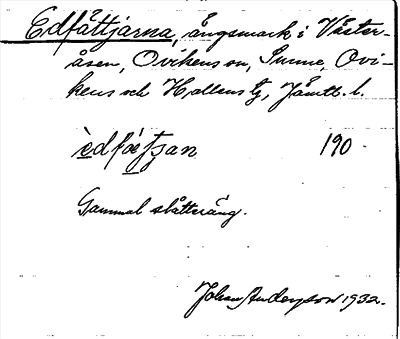 Edfåttjärna, ängsmark i Väster-
åsen, Ovikens sn, Sunne, Ovi-
kens och Hallens tg, Jämtl. l.
190.
Gammal slåtteräng.
Johan Anderson 1932.